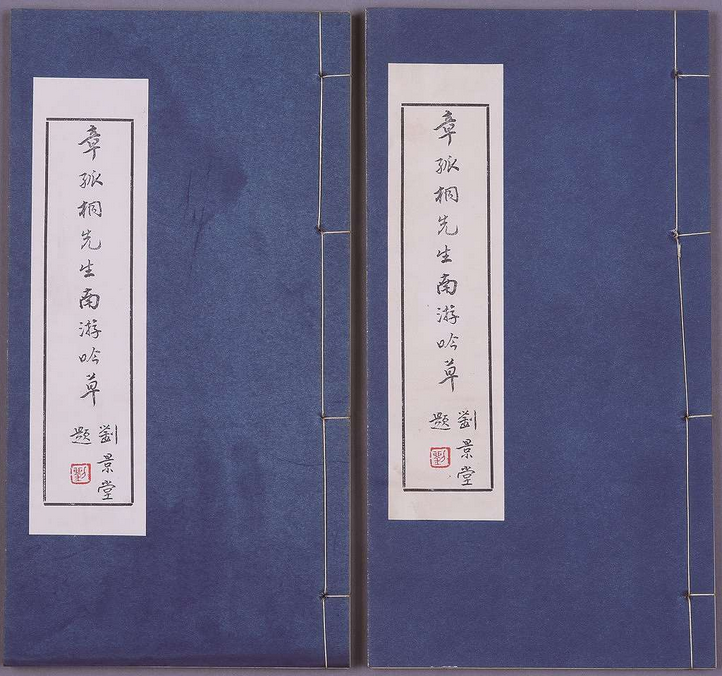 章孤桐先生南游吟草
劉景堂
題
劉
章孤桐先生南游吟草
劉景堂
題
劉